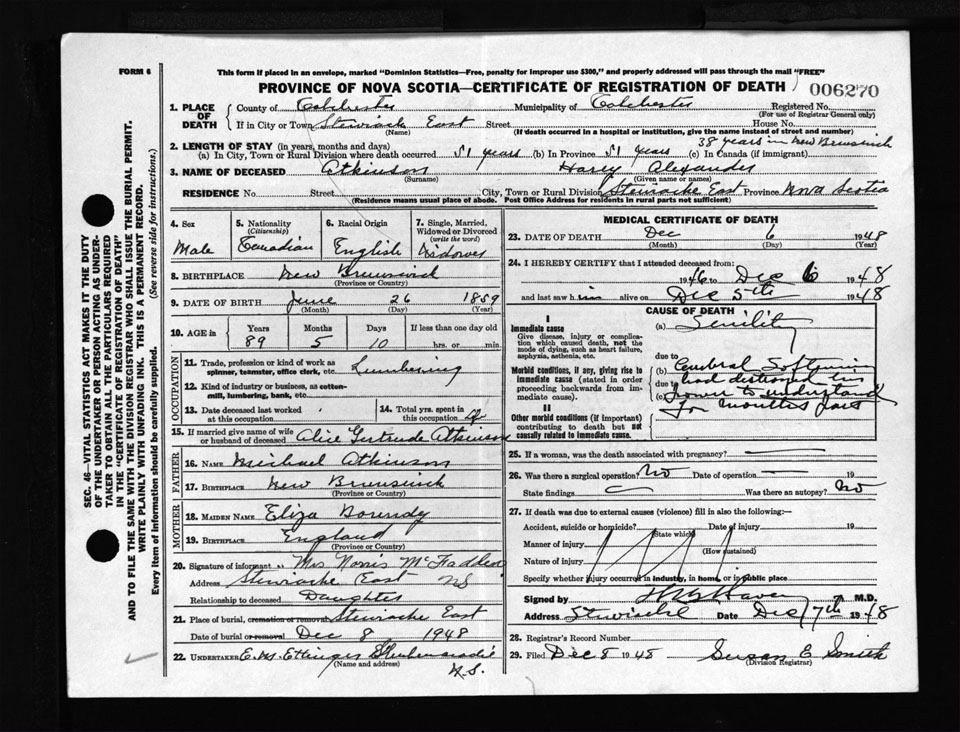 FORM 6
This form if placed in an envelope, marked "Dominion Statistics—Free, penalty for improper use $300," and properly addressed will pass through the mail "FREE"
PROVINCE OF NOVA SCOTIA—CERTIFICATE OF REGISTRATION OF DEATH 006270
1. PLACE OF DEATH County of Colchester Municipality of Colchester Registered No.
(For use of Registrar General only)
If in City or Town Stewiacke East Street House No.
(Name) (If death occurred in a hospital or institution, give the name instead of street and number)
2. LENGTH OF STAY (in years, months and days) 38 years in New Brunswick
(a) In City, Town or Rural Division where death occurred 51 years (b) In Province 51 years (c) In Canada (if immigrant)
3. NAME OF DECEASED Atkinson Alexander
(Surname) (Given name or names)
RESIDENCE No. Street City, Town or Rural Division Stewiacke East Province Nova Scotia
(Residence means usual place of abode. Post Office Address for residents in rural parts not sufficient)
4. Sex 5. Nationality (Citizenship) 6. Racial Origin 7. Single, Married, Widowed or Divorced (write the word)
Male Canadian English Widower
8. BIRTHPLACE New Brunswick
(Province or Country)
9. DATE OF BIRTH June 26 1859
(Month) (Day) (Year)
10. AGE in Years Months Days If less than one day old
89 5 10 hrs. or min.
OCCUPATION
11. Trade, profession or kind of work as spinner, teamster, office clerk, etc. Lumbering
12. Kind of industry or business, as cotton-mill, lumbering, bank, etc.
13. Date deceased last worked at this occupation 14. Total yrs. spent in this occupation
15. If married give name of wife or husband of deceased Alice Gertrude Atkinson
FATHER
16. NAME Michael Atkinson
17. BIRTHPLACE New Brunswick
(Province or Country)
MOTHER
18. MAIDEN NAME Eliza
19. BIRTHPLACE England
(Province or Country)
20. Signature of informant Mrs Norris McFadden
Address Stewiacke East NS
Relationship to deceased Daughter
21. Place of burial, cremation or removal Stewiacke East
Date of burial or removal Dec 8 1948
22. UNDERTAKER E. M. Ettinger Shubenacadie
(Name and address) N.S.
MEDICAL CERTIFICATE OF DEATH
23. DATE OF DEATH Dec 6 1948
(Month) (Day) (Year)
24. I HEREBY CERTIFY that I attended deceased from:
1946 to Dec 6 1948
and last saw him alive on Dec 5th 1948
CAUSE OF DEATH
I
Immediate cause
Give disease, injury or complication which caused death, not the mode of dying, such as heart failure, asphyxia, asthenia, etc.
(a) Senility
due to
Morbid conditions, if any, giving rise to immediate cause (stated in order proceeding backwards from immediate cause).
(b) Cerebral Softening
due to had destroyed his
(c) power to understand
for months past
II
Other morbid conditions (if important) contributing to death but not causally related to immediate cause.
25. If a woman, was the death associated with pregnancy?
26. Was there a surgical operation? No Date of operation 19
State findings Was there an autopsy? No
27. If death was due to external causes (violence) fill in also the following:
Accident, suicide or homicide? Date of injury 19
(State which)
Manner of injury
(How sustained)
Nature of injury
Specify whether injury occurred in industry, in home, or in public place
Signed by M.D.
Address Stewiacke Date Dec 7th 1948
28. Registrar's Record Number
29. Filed Dec 8 1948 Susan E. Smith
(Division Registrar)
SEC. 46—VITAL STATISTICS ACT MAKES IT THE DUTY
OF THE UNDERTAKER OR PERSON ACTING AS UNDER-
TAKER TO OBTAIN ALL THE PARTICULARS REQUIRED
IN THE "CERTIFICATE OF REGISTRATION OF DEATH"
AND TO FILE THE SAME WITH THE DIVISION REGISTRAR WHO SHALL ISSUE THE BURIAL PERMIT.
WRITE PLAINLY WITH UNFADING INK. THIS IS A PERMANENT RECORD.
Every item of Information should be carefully supplied. (See reverse side for instructions.)